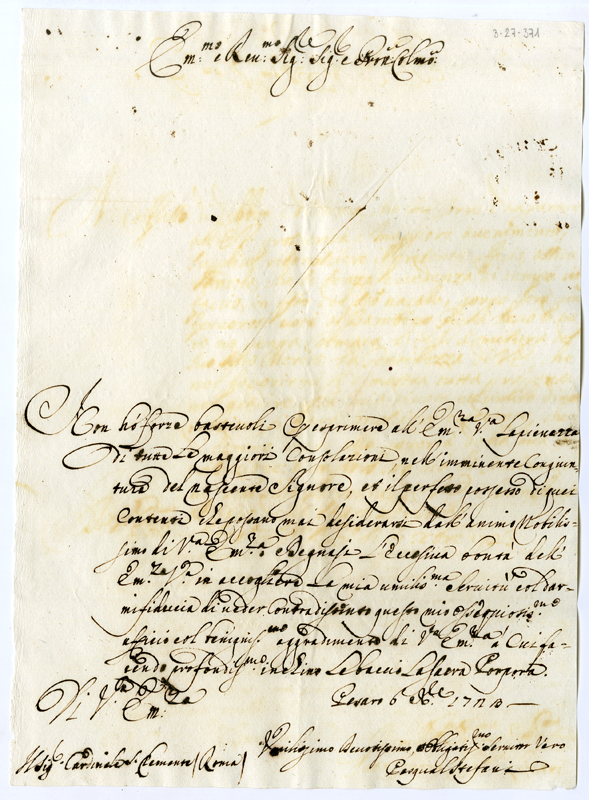 3-27-371
Em.mo e Reu.mo Sig.r Sig.r e Pron Colmo.
Non hò forze basteuoli per esprimere all' Em.za V.ra la pienezza
di tutte le maggiori Consolazioni, nell' imminente Congiun-
tura del nascente Signore, et il perfetto possesso di quei
Contenti che possano mai desiderarsi dall' animo Nobilis-
simo di V.ra Em.za e Degnasi l'eccessiua bontà dell'
Em.za V.ra in accogliere la mia umilis.ma seruitù col dar-
mi fiducia di ueder contradistinto questo mio ossequiosis.mo
ufficio col benignis.mo aggradimento di V.ra Em.za a Cui fa-
cendo profondis.mo inchino Le baccio La Sacra Porpora.
Di V.ra Em.za
Pesaro 6 Xbre
Sig.r Cardinale S. Clemente (Roma)
Umilissimo Deuotissimo Obligatis.mo Seruitor Vero
Pasqual Stefani